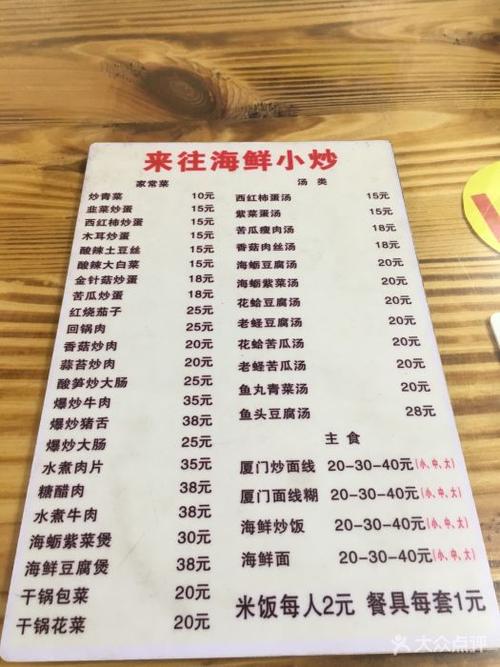 来往海鲜小炒
家常菜
炒青菜 10元
韭菜炒蛋 15元
西红柿炒蛋 15元
木耳炒蛋 15元
酸辣土豆丝 15元
酸辣大白菜 15元
金针菇炒蛋 18元
苦瓜炒蛋 18元
红烧茄子 25元
回锅肉 25元
香菇炒肉 20元
蒜苔炒肉 20元
酸笋炒大肠 25元
爆炒牛肉 35元
爆炒猪舌 38元
爆炒大肠 25元
水煮肉片 35元
糖醋肉 38元
水煮牛肉 38元
海蛎紫菜煲 30元
海鲜豆腐煲 38元
干锅包菜 20元
干锅花菜 20元
汤类
西红柿蛋汤 15元
紫菜蛋汤 15元
苦瓜瘦肉汤 18元
香菇肉丝汤 18元
海蛎豆腐汤 20元
海蛎紫菜汤 20元
花蛤豆腐汤 20元
老蛏豆腐汤 20元
花蛤苦瓜汤 20元
老蛏苦瓜汤 20元
鱼丸青菜汤 20元
鱼头豆腐汤 28元
主食
厦门炒面线 20-30-40元(小、中、大)
厦门面线糊 20-30-40元(小、中、大)
海鲜炒饭 20-30-40元(小、中、大)
海鲜面 20-30-40元(小、中、大)
米饭每人2元 餐具每套1元
大众点评